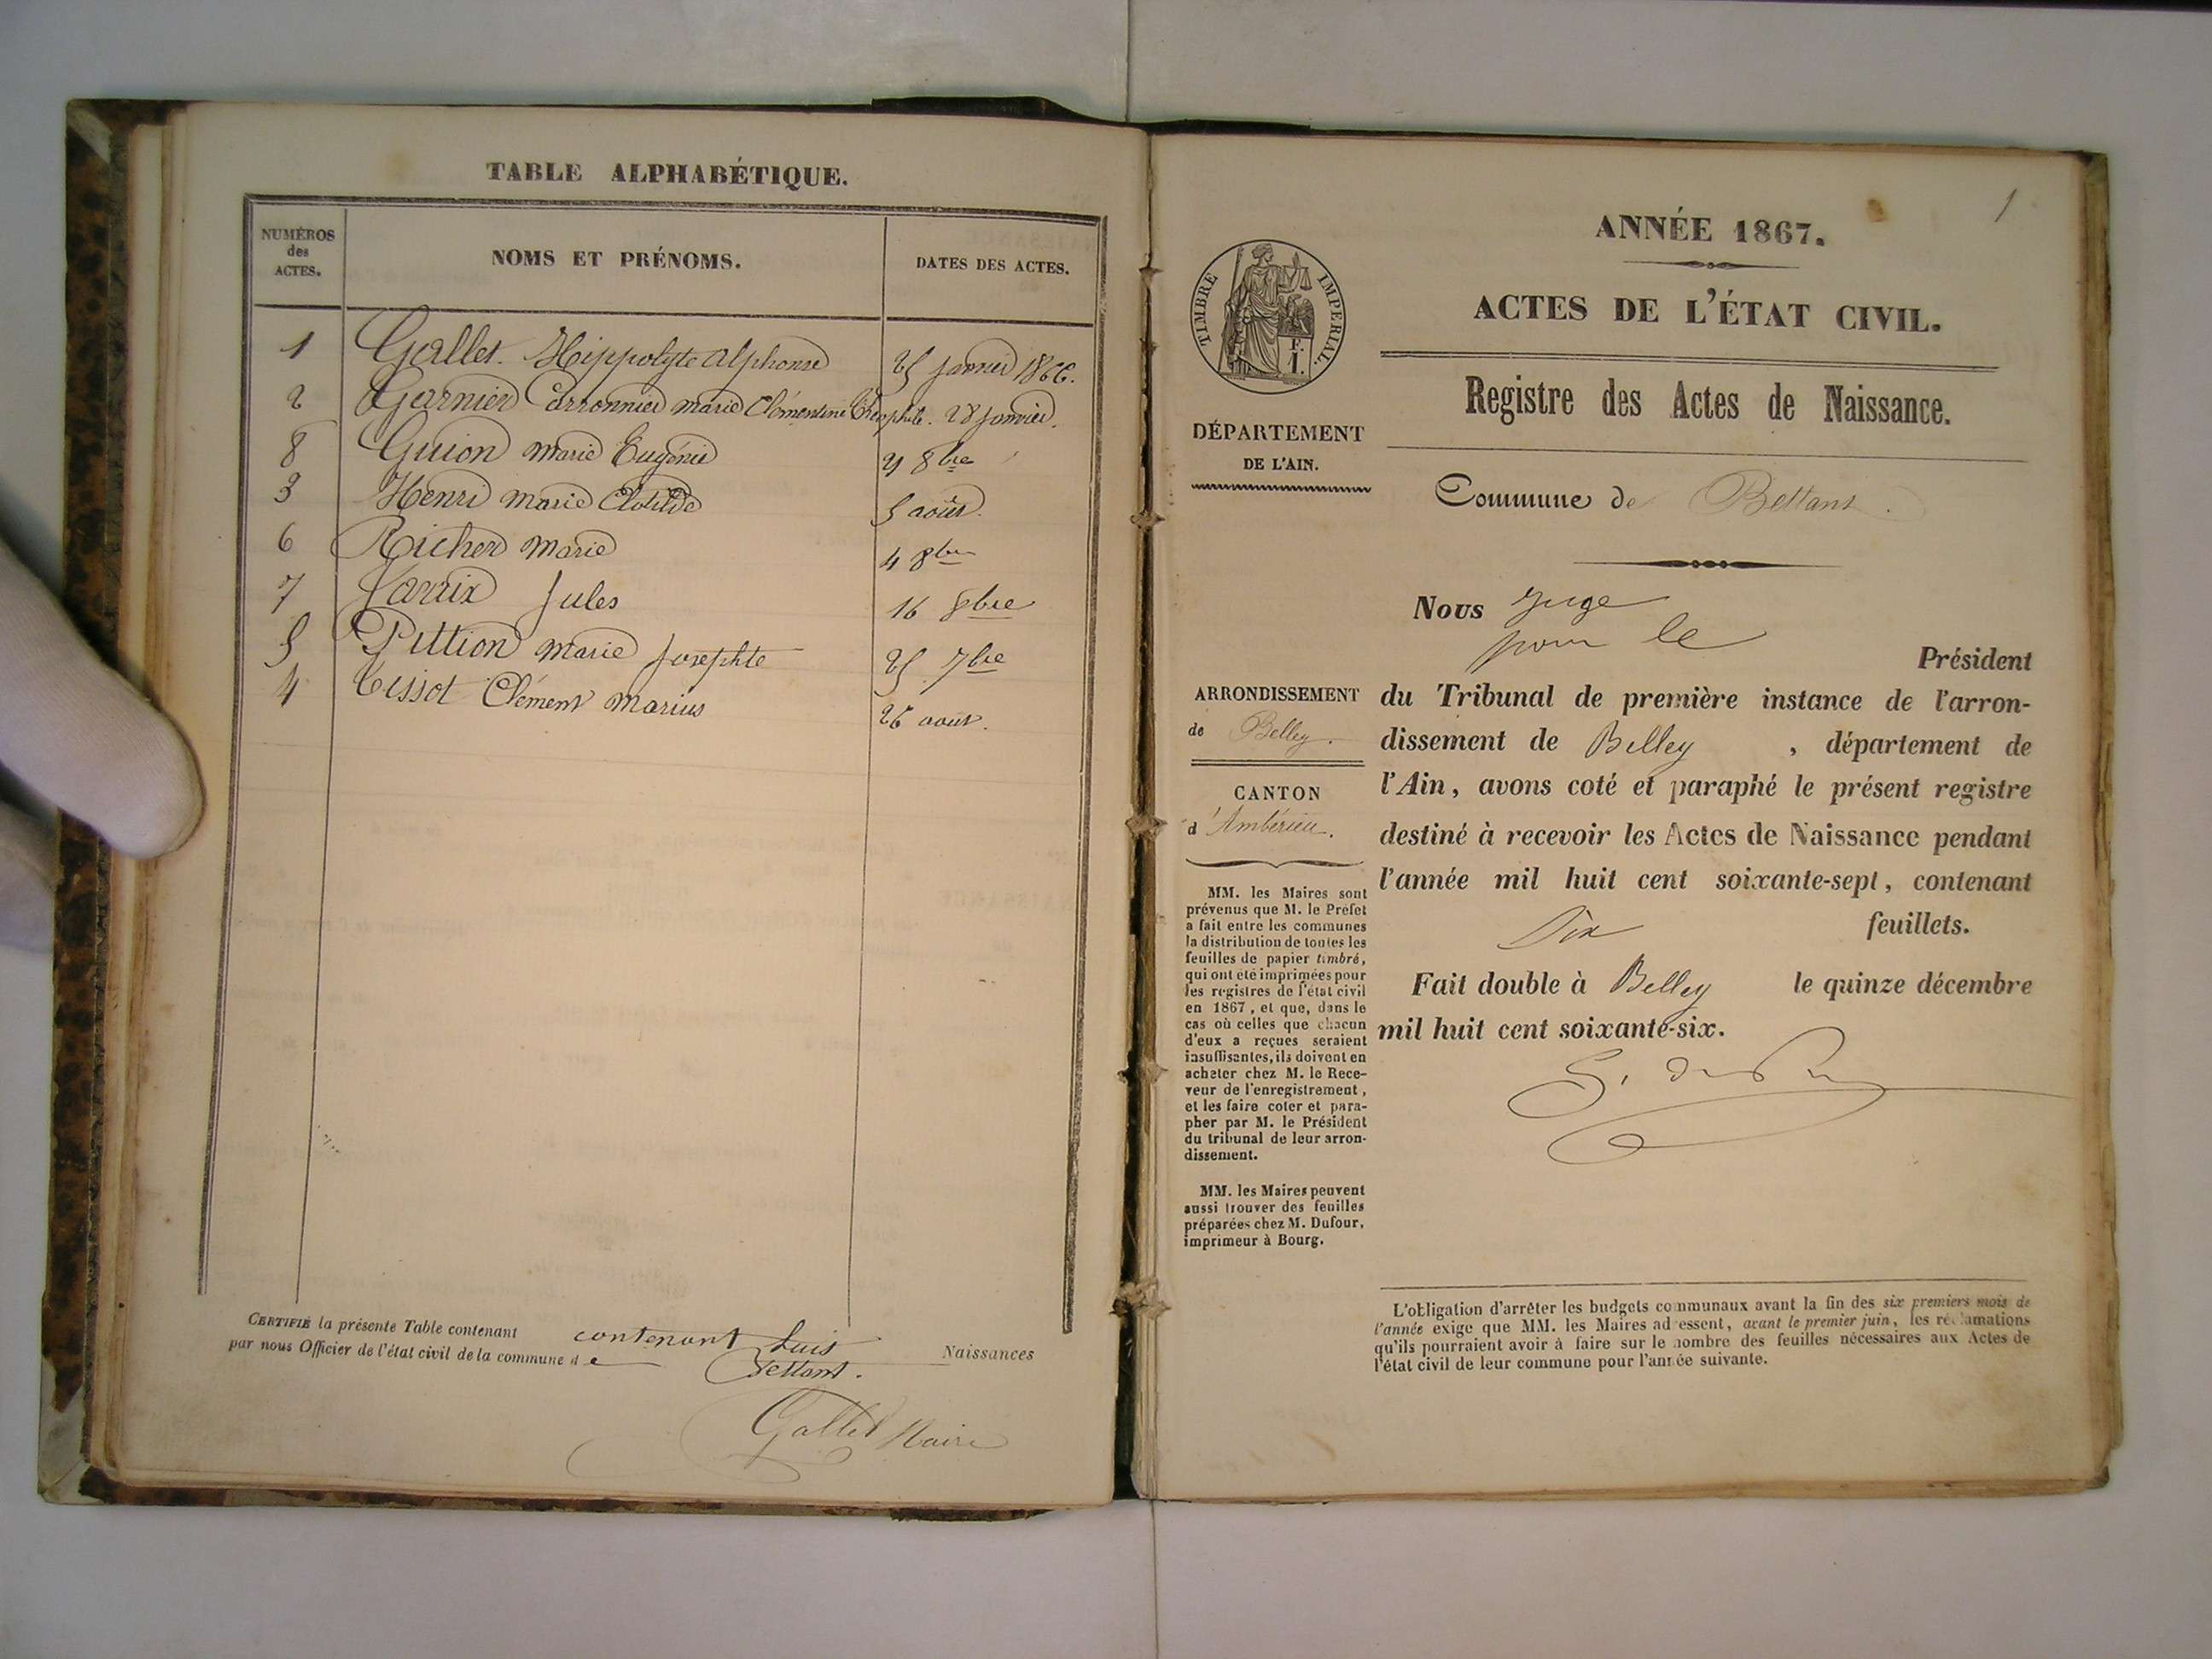 TABLE ALPHABÉTIQUE.
NUMÉROS des ACTES.
NOMS ET PRÉNOMS.
DATES DES ACTES.
1 Gallet Hippolyte Alphonse 25 janvier 1866.
2 Garnier Carronnier marie Clémentine Théophile. 28 janvier.
8 Guion marie Eugénie 21 8bre
3 Henri marie Clotilde 5 août.
6 Richer marie 4 8bre
7 Jules 16 8bre
5 Pittion marie Josephte 25 7bre
4 Tissot Clément marius 26 août.
CERTIFIÉ la présente Table contenant contenant huit Naissances
par nous Officier de l'état civil de la commune de Bettant.
Gallet Maire
1
ANNÉE 1867.
ACTES DE L'ÉTAT CIVIL.
Registre des Actes de Naissance.
TIMBRE IMPÉRIAL.
DÉPARTEMENT
DE L'AIN.
Commune de Bettant.
Nous Juge
pour le
Président
du Tribunal de première instance de l'arron-
dissement de Belley , département de
l'Ain, avons coté et paraphé le présent registre
destiné à recevoir les Actes de Naissance pendant
l'année mil huit cent soixante-sept, contenant
Six feuillets.
Fait double à Belley le quinze décembre
mil huit cent soixante-six.
ARRONDISSEMENT
de Belley.
CANTON
d'Ambérieu.
MM. les Maires sont
prévenus que M. le Préfet
a fait entre les communes
la distribution de toutes les
feuilles de papier timbré,
qui ont été imprimées pour
les registres de l'état civil
en 1867, et que, dans le
cas où celles que chacun
d'eux a reçues seraient
insuffisantes, ils doivent en
acheter chez M. le Rece-
veur de l'enregistrement,
et les faire coter et para-
pher par M. le Président
du tribunal de leur arron-
dissement.
MM. les Maires peuvent
aussi trouver des feuilles
préparées chez M. Dufour,
imprimeur à Bourg.
L'obligation d'arrêter les budgets communaux avant la fin des six premiers mois de
l'année exige que MM. les Maires adressent, avant le premier juin, les réclamations
qu'ils pourraient avoir à faire sur le nombre des feuilles nécessaires aux Actes de
l'état civil de leur commune pour l'année suivante.